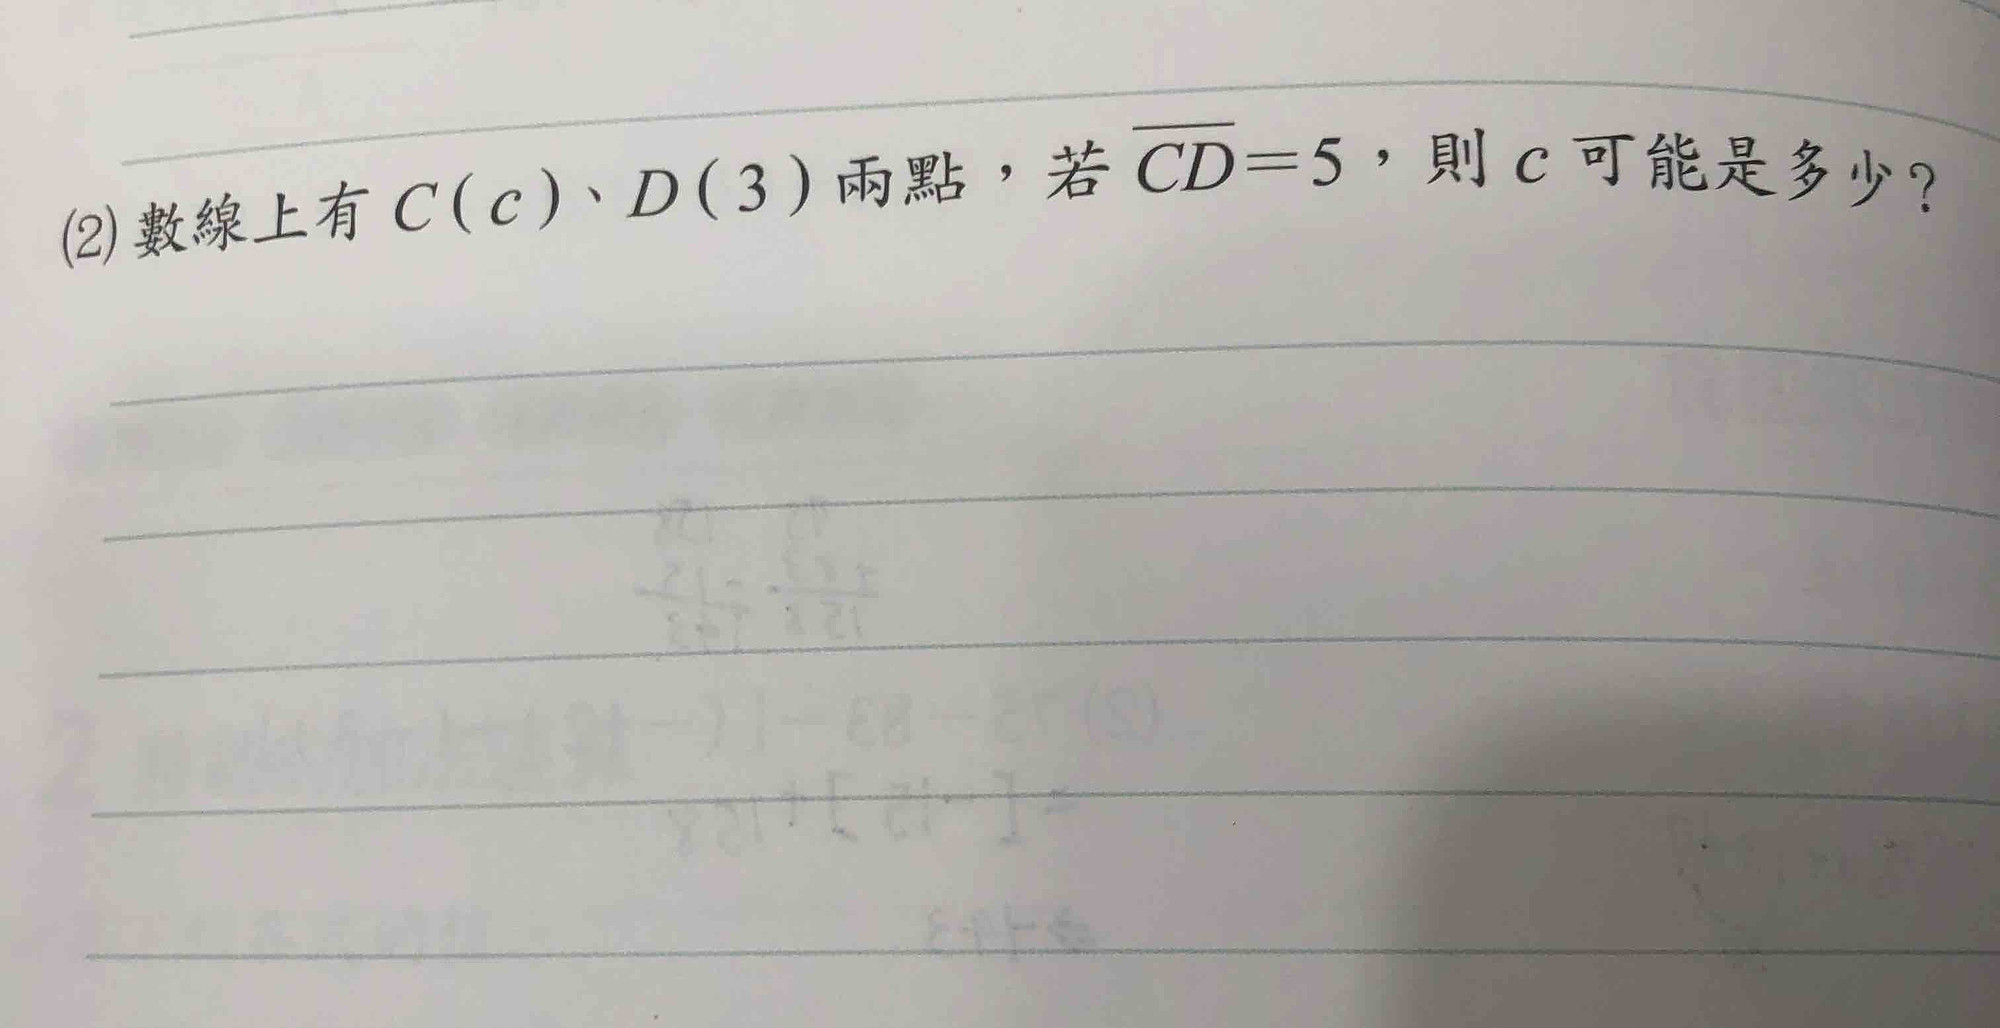 (2) 數線上有 C(c)、D(3) 兩點，若 \overline{CD}=5，則 c 可能是多少？